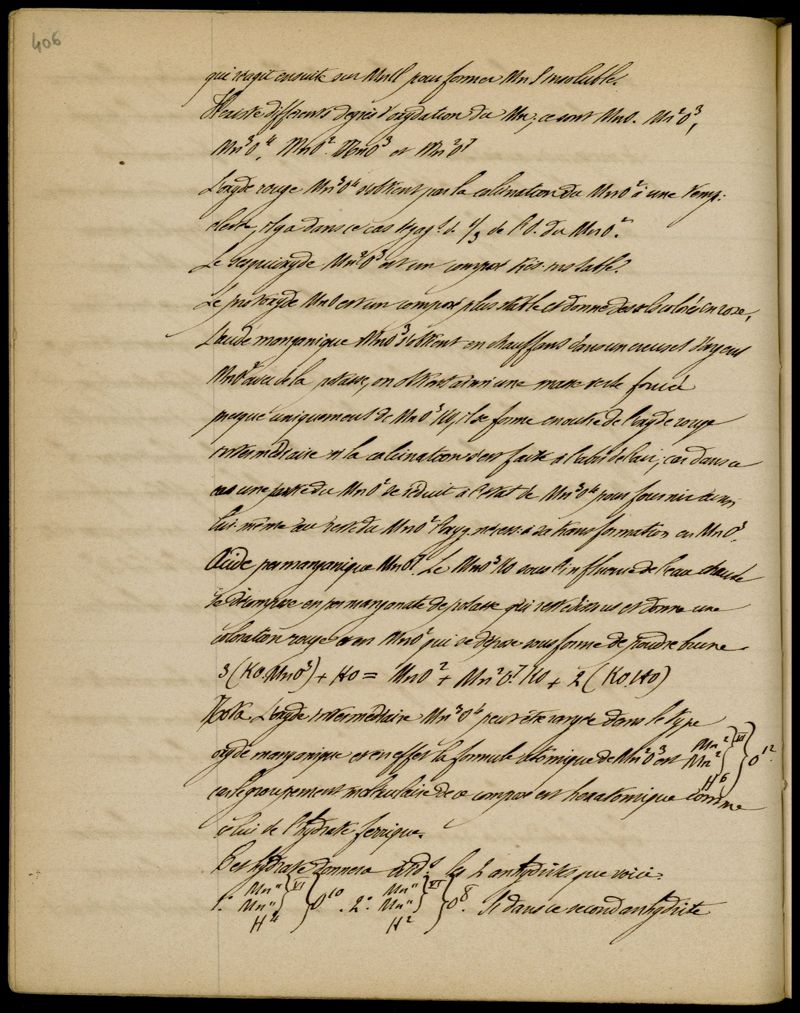 406
qui réagit ensuite sur MnCl pour former MnS insoluble.
Il existe différents degrés d'oxydation du Mn, ce sont MnO. Mn²O³,
Mn³O⁴, MnO². MnO³ et Mn²O⁷
L'oxyde rouge Mn³O⁴ s'obtient par la calcination du MnO² à une temp.
élevée, il y a dans ce cas dégag.t de 1/3 de l'O. du MnO².
Le sesquioxyde Mn²O³ est un composé très instable.
Le protoxyde MnO est un composé plus stable et donne des sels colorés en rose,
L'acide manganique MnO³ s'obtient en chauffant dans un creuset d'argent
MnO² avec de la potasse, on obtient ainsi une masse verte formée
presque uniquement de MnO³KO, il se forme en outre de l'oxyde rouge
intermédiaire si la calcination s'est faite à l'abri de l'air, car dans ce
cas une partie du MnO² se réduit à l'état de Mn³O⁴ pour fournir
lui même au reste du MnO² l'oxyg. nécess. à sa transformation en MnO³.
Acide permanganique Mn²O⁷. Le MnO³KO sous l'influence de l'eau chaude
se décompose en permanganate de potasse qui reste dissous et donne une
coloration rouge et en MnO² qui se dépose sous forme de poudre brune
3 (KO.MnO³) + HO = MnO² + Mn²O⁷.KO + 2 (KO.HO)
Nota. L'oxyde intermédiaire Mn³O⁴ peut être rangé dans le type
oxyde manganique et en effet la formule atomique de Mn²O³ est Mn² Mn² H⁶ }VI }O¹².
car le groupement moléculaire de ce composé est hexatomique comme
celui de l'hydrate ferrique.
Cet hydrate donnera les 2 anhydrites que voici.
1° Mn" Mn" H⁴ }VI }O¹⁰. 2° Mn" Mn" H² }VI }O⁸. Si dans ce second anhydrite